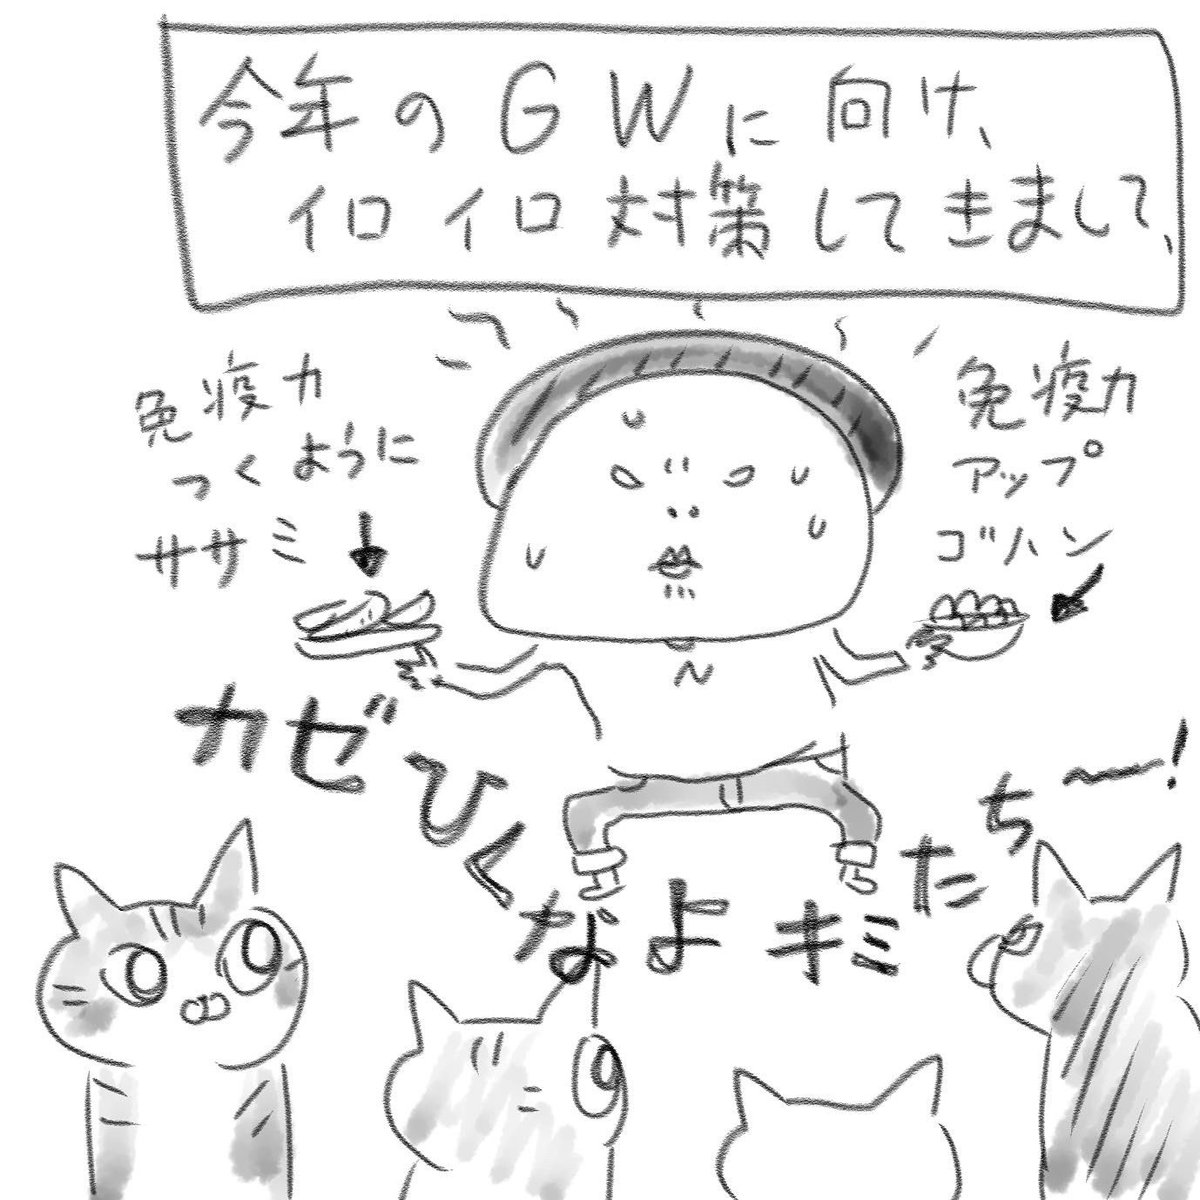 今年のGWに向け、
イロイロ対策してきまして、
免疫力
つくように
ササミ
免疫力
アップ
ゴハン
カゼひくなよキミたちー!